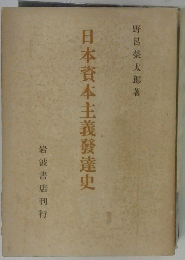 野呂榮太郎著
日本資本主義發達史
岩波書店刊行